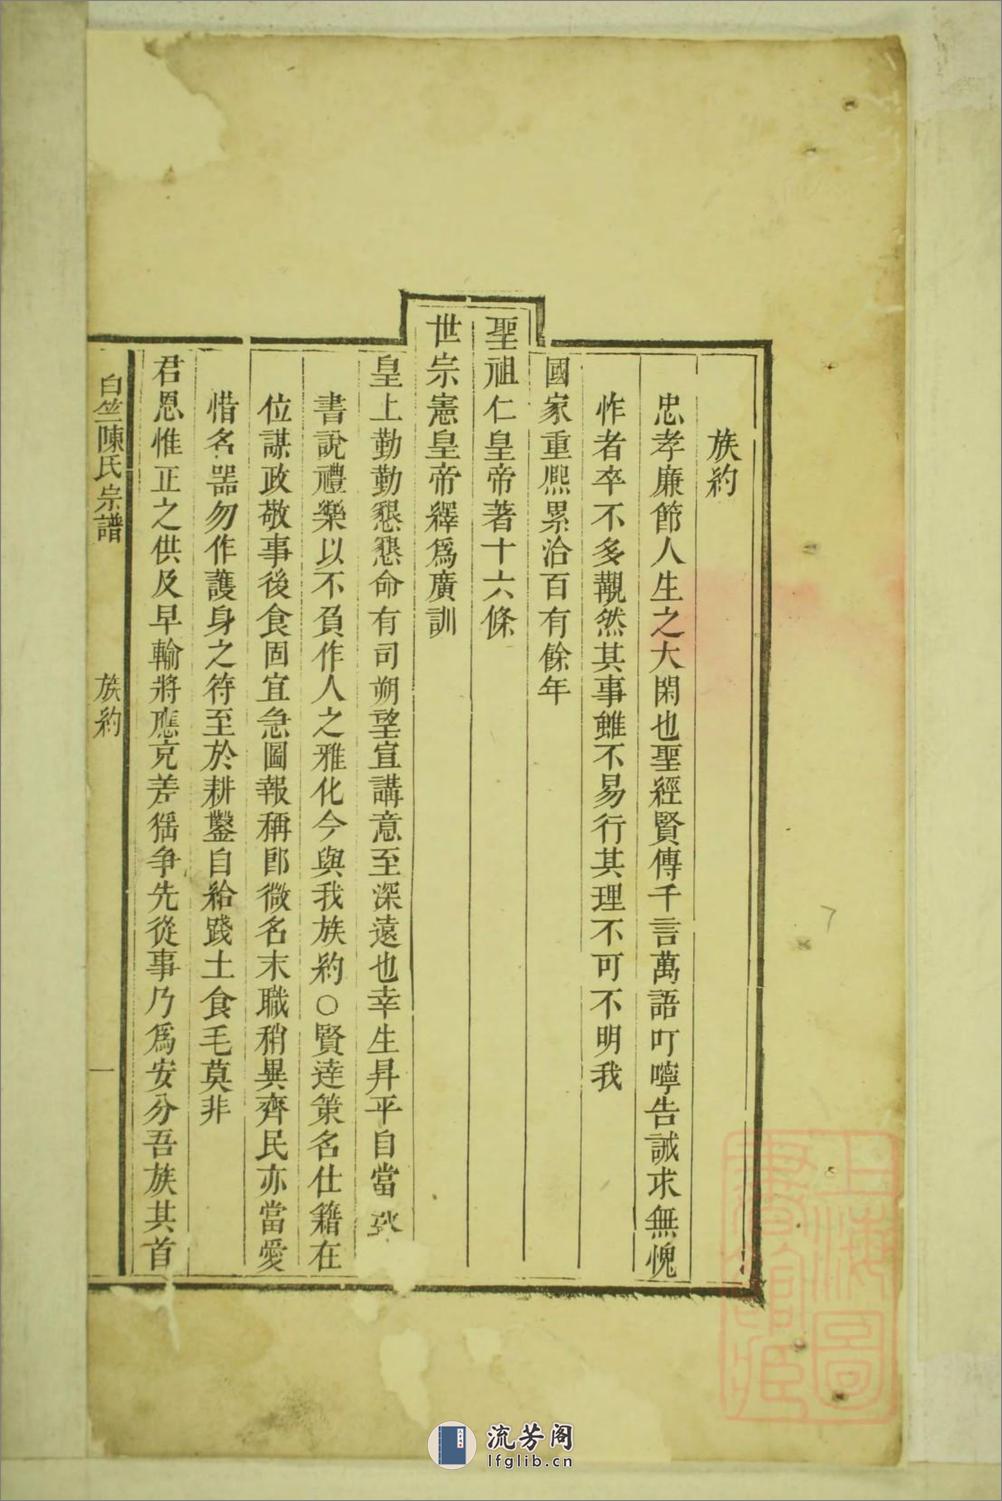 族約
忠孝廉節人生之大閑也聖經賢傳千言萬語叮嚀告誡求無愧
怍者卒不多覯然其事雖不易行其理不可不明我
國家重熙累洽百有餘年
聖祖仁皇帝著十六條
世宗憲皇帝繹爲廣訓
皇上勤勤懇懇命有司朔望宣講意至深遠也幸生昇平自當
書說禮樂以不負作人之雅化今與我族約○賢達策名仕籍在
位謀政敬事後食固宜急圖報稱卽微名末職稍異齊民亦當愛
惜名器勿作護身之符至於耕鑿自給踐土食毛莫非
君恩惟正之供及早輸將應克差猺争先從事乃爲安分吾族其首
白竺陳氏宗譜
族約
一
上海圖
書館藏
流芳阁
lfglib.cn